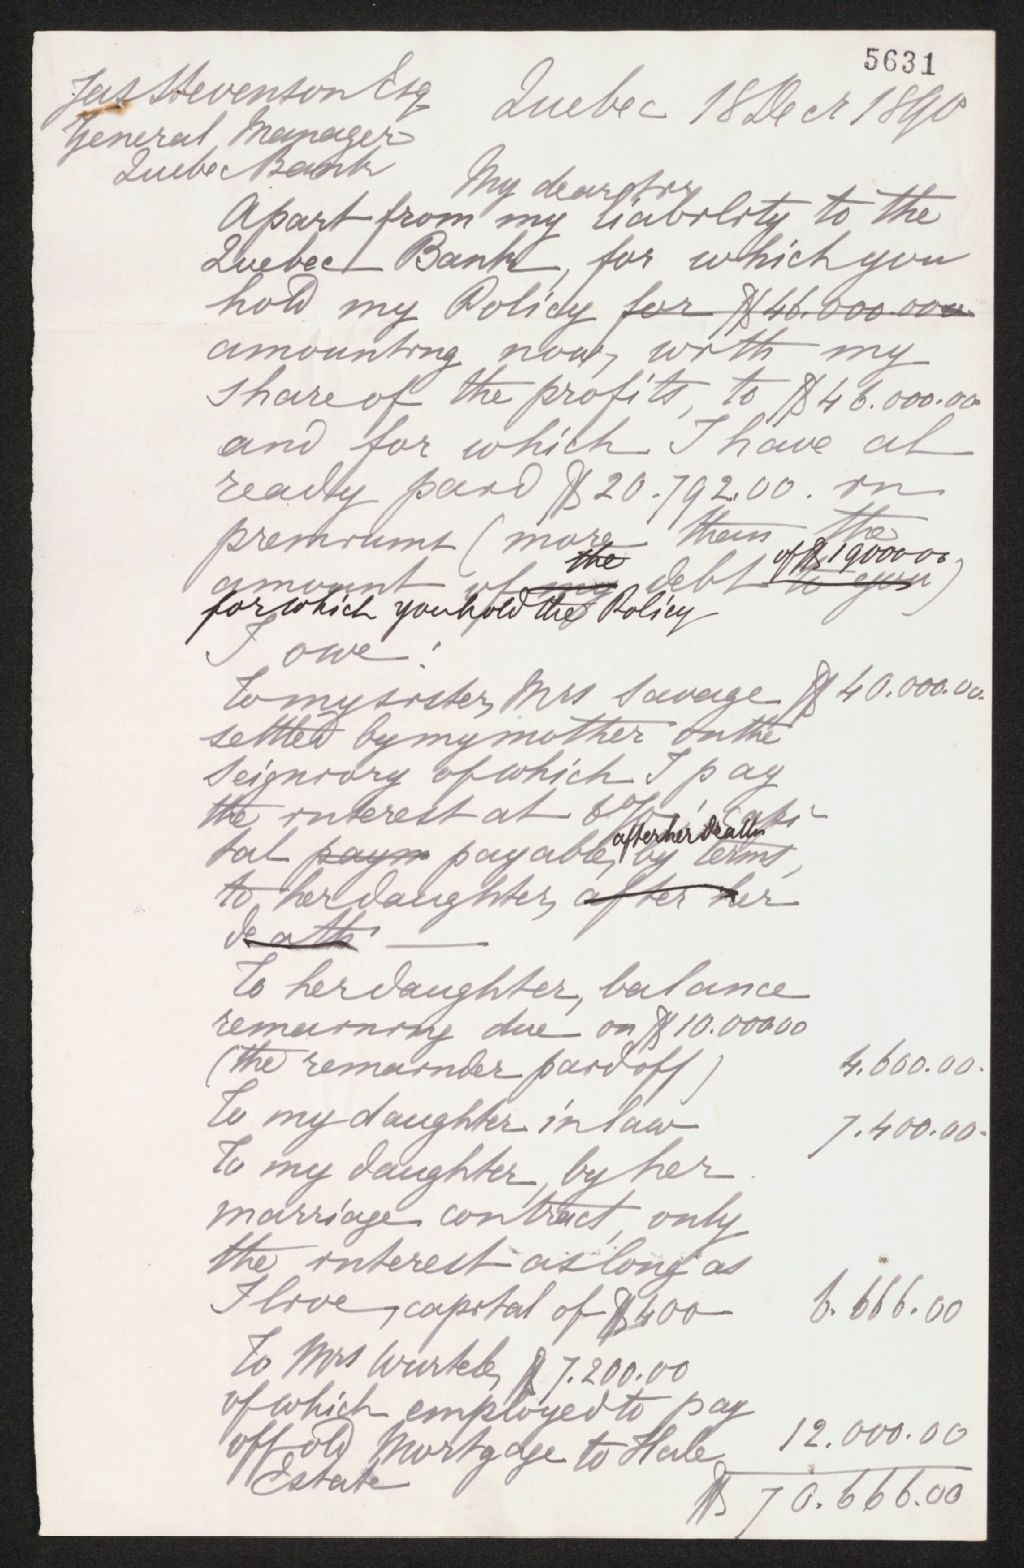 5631
Jas Stevenson Esq
General Manager
Quebec Bank
Quebec 18 Decr 1890
My dear Sir
Apart from my liability to the
Quebec Bank, for which you
hold my Policy for $46.000.00
amounting now, with my
share of the profits, to $46.000.00
and for which I have al
ready paid $20.792.00. in
premiums (more than the
the of $19000 00
amount of my debt to you)
for which you hold the Policy
I owe:
To my sister, Mrs Savage $40.000.00
settled by my mother on the
Seigniory of which I pay
the interest at 6 %, capi-
after her death
tal paym payable, by terms,
to her daughter, after her
death —
To her daughter, balance
remaining due on $10.000 00
(the remainder paid off) 4.600.00.
To my daughter in law 7.400.00.
To my daughter, by her
marriage contract, only
the interest as long as
I live, capital of $400 6.666.00
To Mrs Wurtele, $7.200.00
of which employed to pay
off old Mortgage to Hale 12.000.00
Estate
$70.666.00